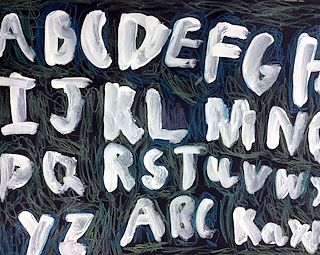 ABCDEFGH
IJKLMNO
PQRSTUVWX
YZ ABC